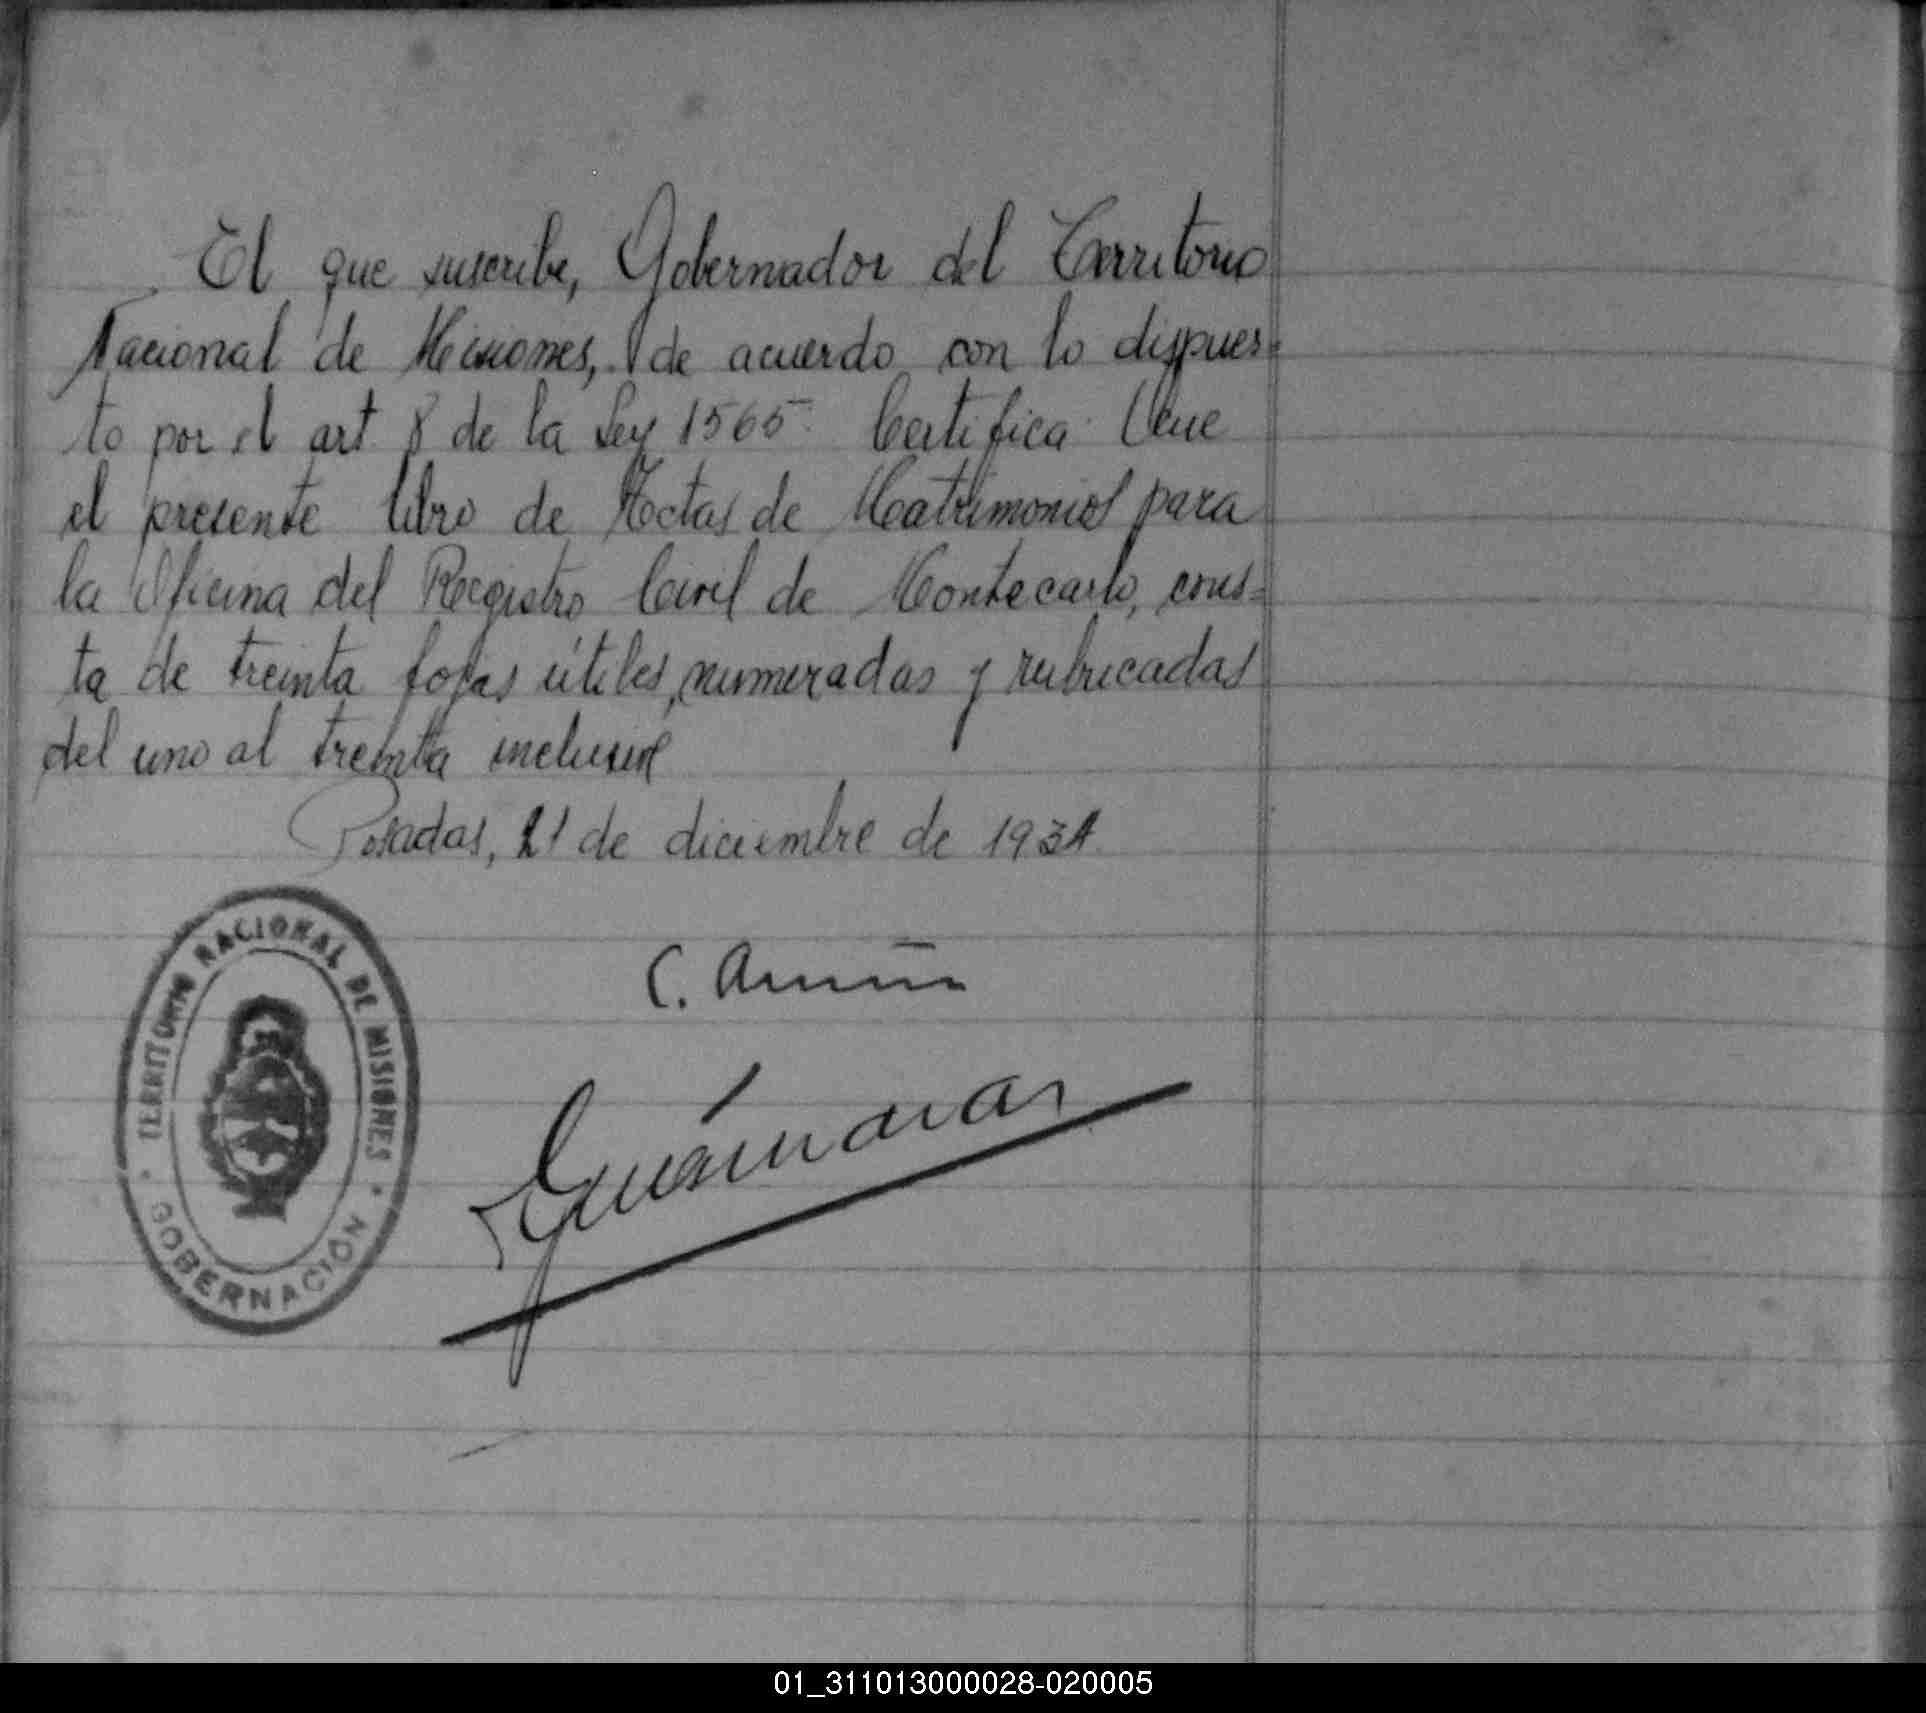 El que suscribe, Gobernador del Territorio
Nacional de Misiones, de acuerdo con lo dispues=
to por el art. 8 de la Ley 1565: Certifica: Que
el presente libro de Actas de Matrimonios para
la Oficina del Registro Civil de Montecarlo, cons=
ta de treinta fojas útiles, numeradas y rubricadas
del uno al treinta inclusive
Posadas, 21 de diciembre de 1934.
C.
TERRITORIO NACIONAL DE MISIONES
· GOBERNACIÓN ·
01_311013000028-020005